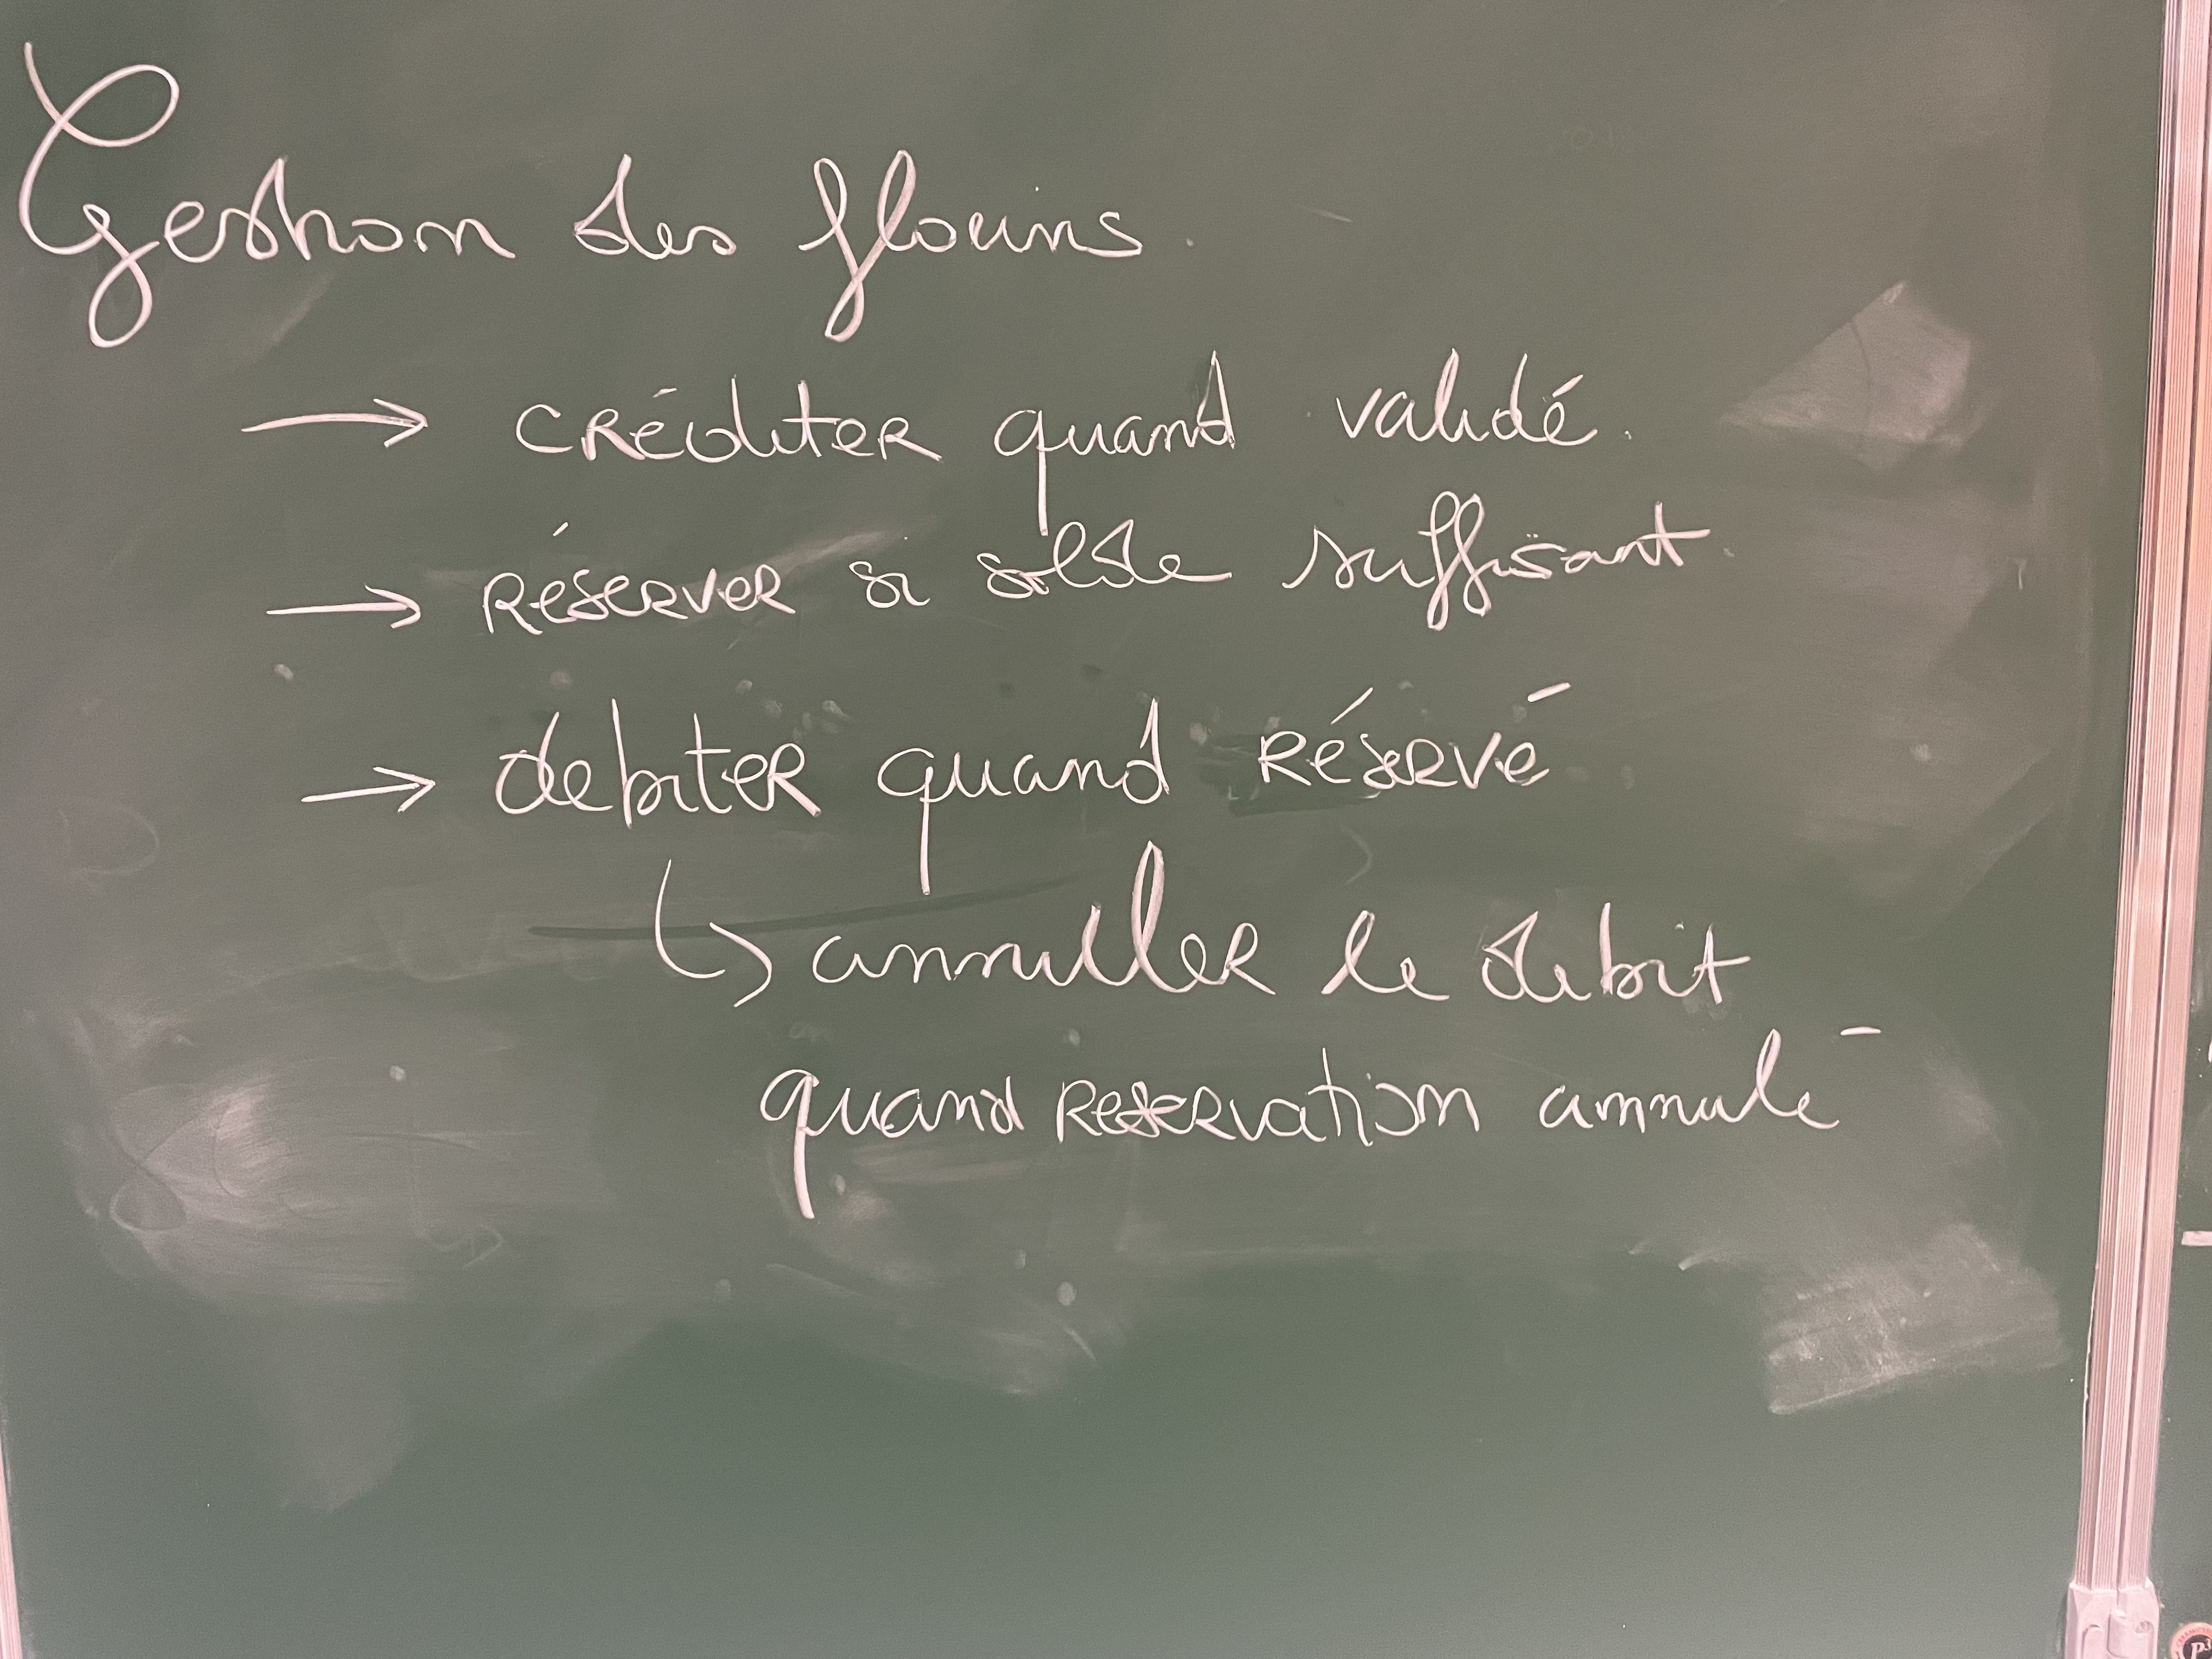 Gestion des florins.
→ créditer quand validé.
→ réserver si solde suffisant.
→ debiter quand réservé
↳ annuller le debit
quand reservation annulé